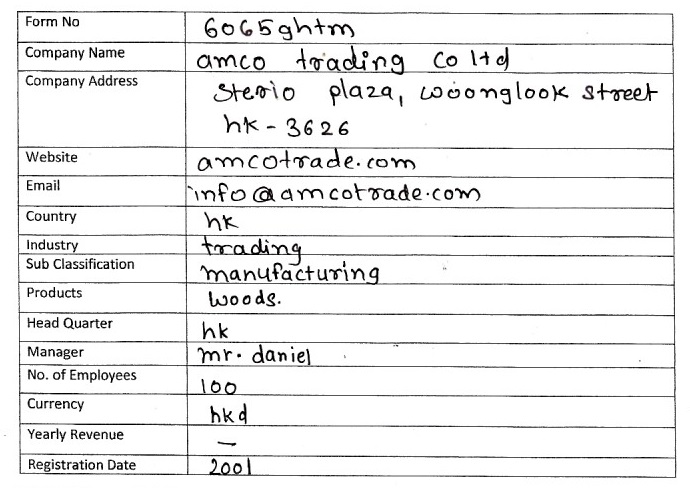 Form No 6065ghtm
Company Name amco trading co ltd
Company Address Sterio plaza, woonglook street
hk - 3626
Website amcotrade.com
Email info@amcotrade.com
Country hk
Industry trading
Sub Classification manufacturing
Products woods.
Head Quarter hk
Manager mr. daniel
No. of Employees 100
Currency hkd
Yearly Revenue —
Registration Date 2001